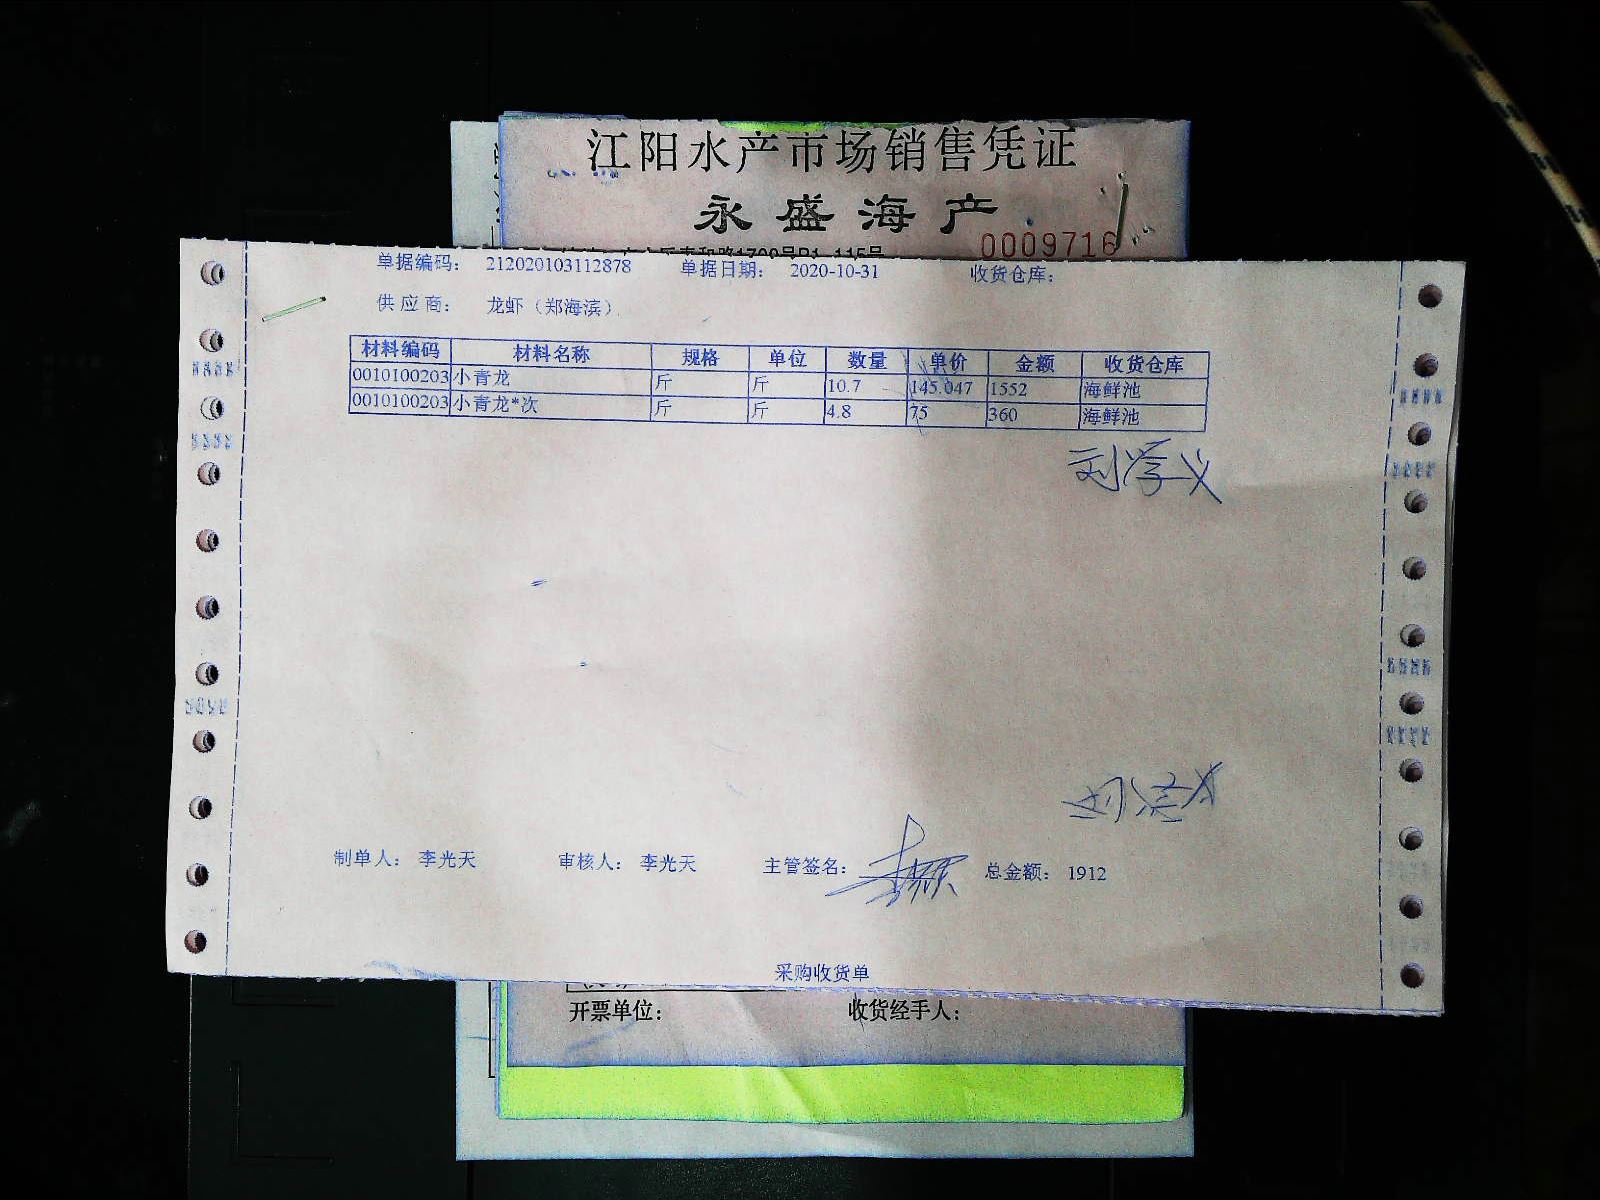 江阳水产市场销售凭证
永盛海产
0009716
单据编码： 212020103112878 单据日期： 2020-10-31 收货仓库：
供应商： 龙虾（郑海滨）
材料编码 材料名称 规格 单位 数量 单价 金额 收货仓库
0010100203 小青龙 斤 斤 10.7 145.047 1552 海鲜池
0010100203 小青龙*次 斤 斤 4.8 75 360 海鲜池
刘学义
制单人： 李光天 审核人： 李光天 主管签名： 总金额： 1912
采购收货单
开票单位： 收货经手人：